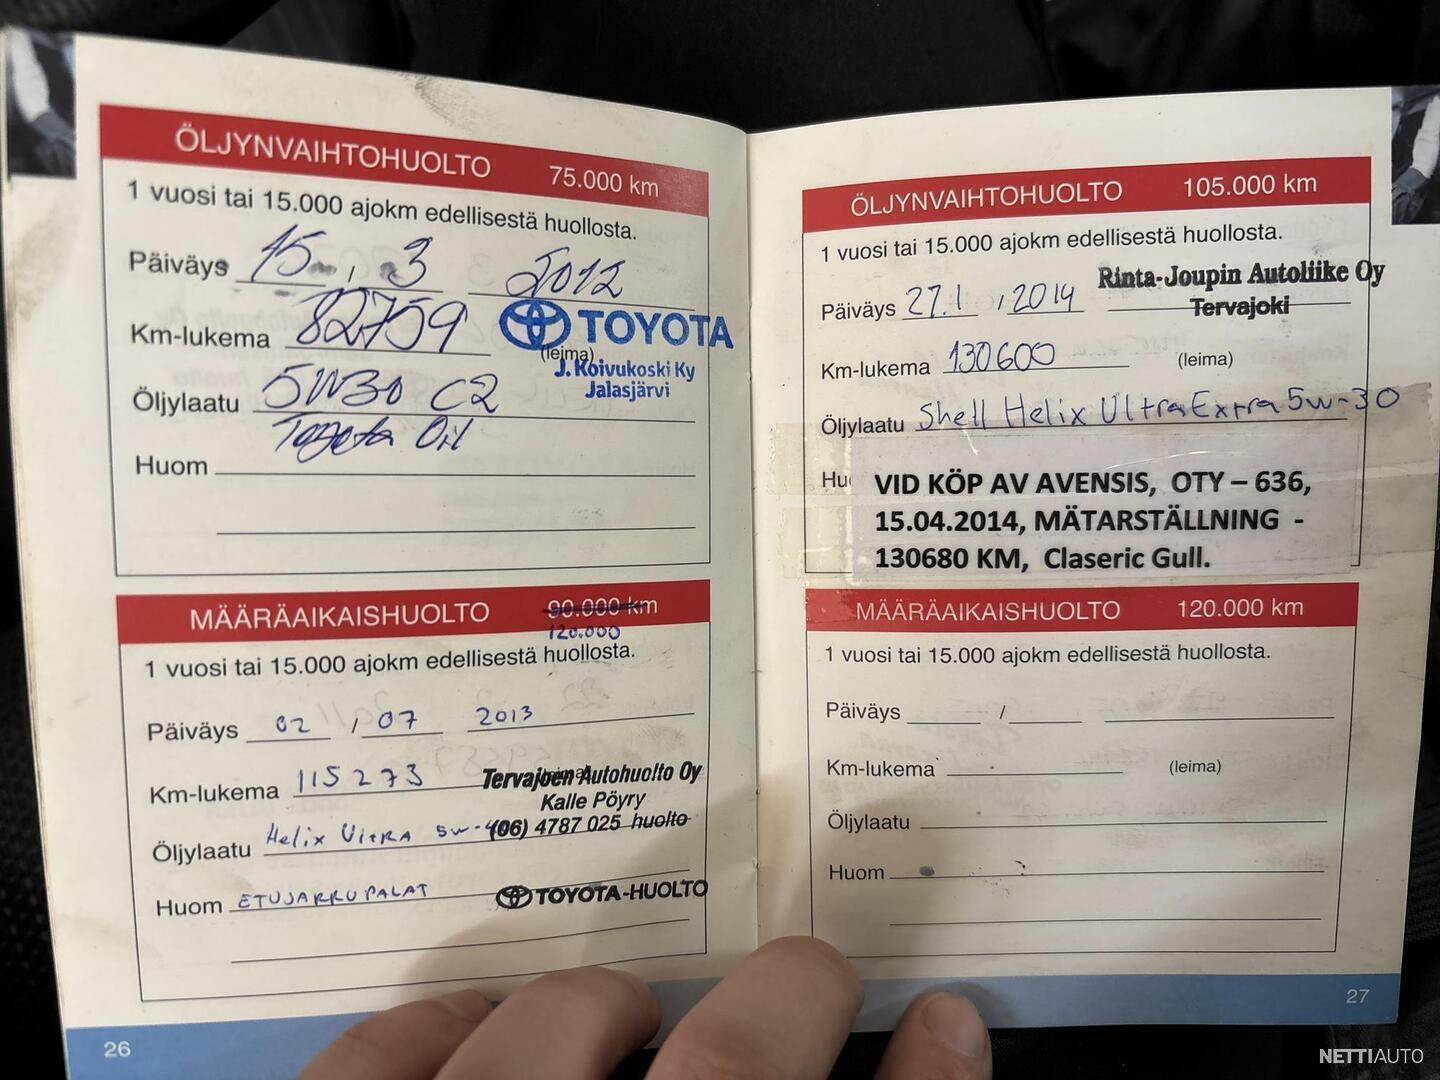 ÖLJYNVAIHTOHUOLTO 75.000 km
1 vuosi tai 15.000 ajokm edellisestä huollosta.
Päiväys 15 , 3 2012
Km-lukema 82759
TOYOTA
(leima)
J. Koivukoski Ky
Jalasjärvi
Öljylaatu 5W30 C2
Toyota Oil
Huom
MÄÄRÄAIKAISHUOLTO 90.000 km
120.000
1 vuosi tai 15.000 ajokm edellisestä huollosta.
Päiväys 02 / 07 2013
Km-lukema 115273
(leima)
Tervajoen Autohuolto Oy
Kalle Pöyry
(06) 4787 025 huolto
Öljylaatu Helix Ultra 5w-40
Huom ETUJARRUPALAT
TOYOTA-HUOLTO
26
ÖLJYNVAIHTOHUOLTO 105.000 km
1 vuosi tai 15.000 ajokm edellisestä huollosta.
Rinta-Joupin Autoliike Oy
Tervajoki
Päiväys 27.1 , 2014
Km-lukema 130600 (leima)
Öljylaatu Shell Helix Ultra Extra 5w-30
Hu
VID KÖP AV AVENSIS, OTY – 636,
15.04.2014, MÄTARSTÄLLNING -
130680 KM, Claseric Gull.
MÄÄRÄAIKAISHUOLTO 120.000 km
1 vuosi tai 15.000 ajokm edellisestä huollosta.
Päiväys /
Km-lukema (leima)
Öljylaatu
Huom
27
NETTIAUTO